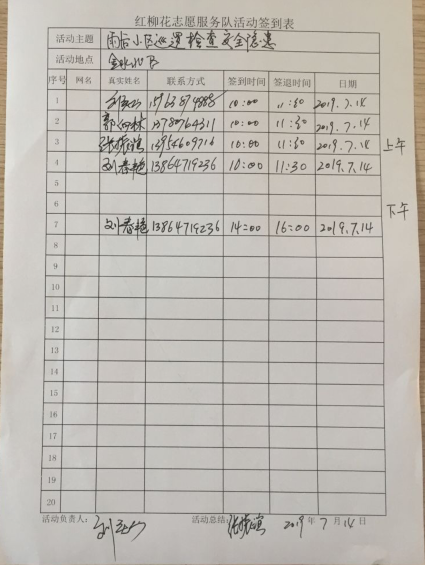 红柳花志愿服务队活动签到表
活动主题 雨后小区巡逻检查安全隐患
活动地点
序号 网名 真实姓名 联系方式 签到时间 签退时间 日期
1 10:00 11:30 2019.7.14
2 10:00 11:30 2019.7.14
3 10:00 11:30 2019.7.14
上午
4 刘春艳 13864719236 10:00 11:30 2019.7.14
5
6
下午
7 刘春艳 13864719236 14:00 16:00 2019.7.14
8
9
10
11
12
13
14
15
16
17
18
19
20
活动负责人: 活动总结: 2019年7月14日